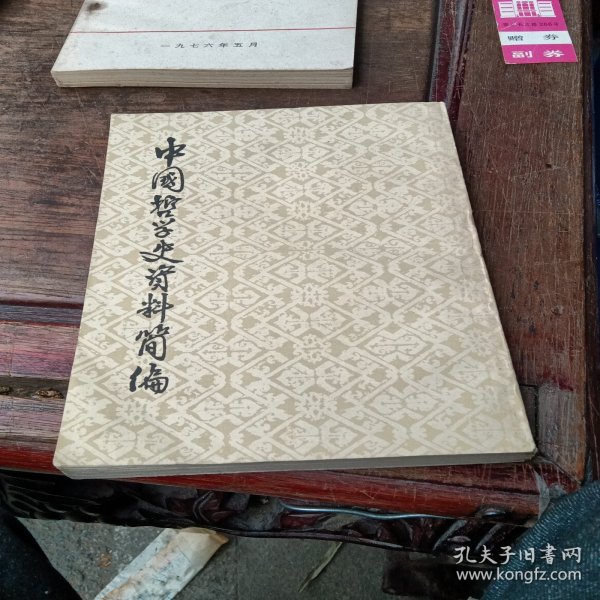 一九七六年五月
赠 券
副 券
中國哲学史資料简编
孔夫子旧书网
www.kongfz.com